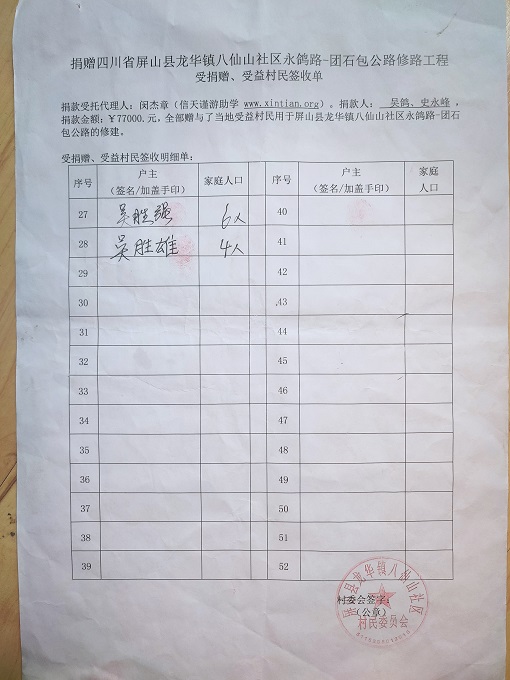 捐赠四川省屏山县龙华镇八仙山社区永鸽路-团石包公路修路工程
受捐赠、受益村民签收单
捐款受托代理人：闵杰章（信天谨游助学 www.xintian.org）。捐款人： 吴鸽、史永峰 ，
捐款金额：￥77000.元，全部赠与了当地受益村民用于屏山县龙华镇八仙山社区永鸽路-团石
包公路的修建。
受捐赠、受益村民签收明细单：
序号 户主 （签名/加盖手印） 家庭人口 序号 户主 （签名/加盖手印） 家庭 人口
27 吴胜强 6人 40
28 吴胜雄 4人 41
29 42
30 43
31 44
32 45
33 46
34 47
35 48
36 49
37 50
38 51
39 52
村委会签字：
（公章）
屏山县龙华镇八仙山社区
村民委员会